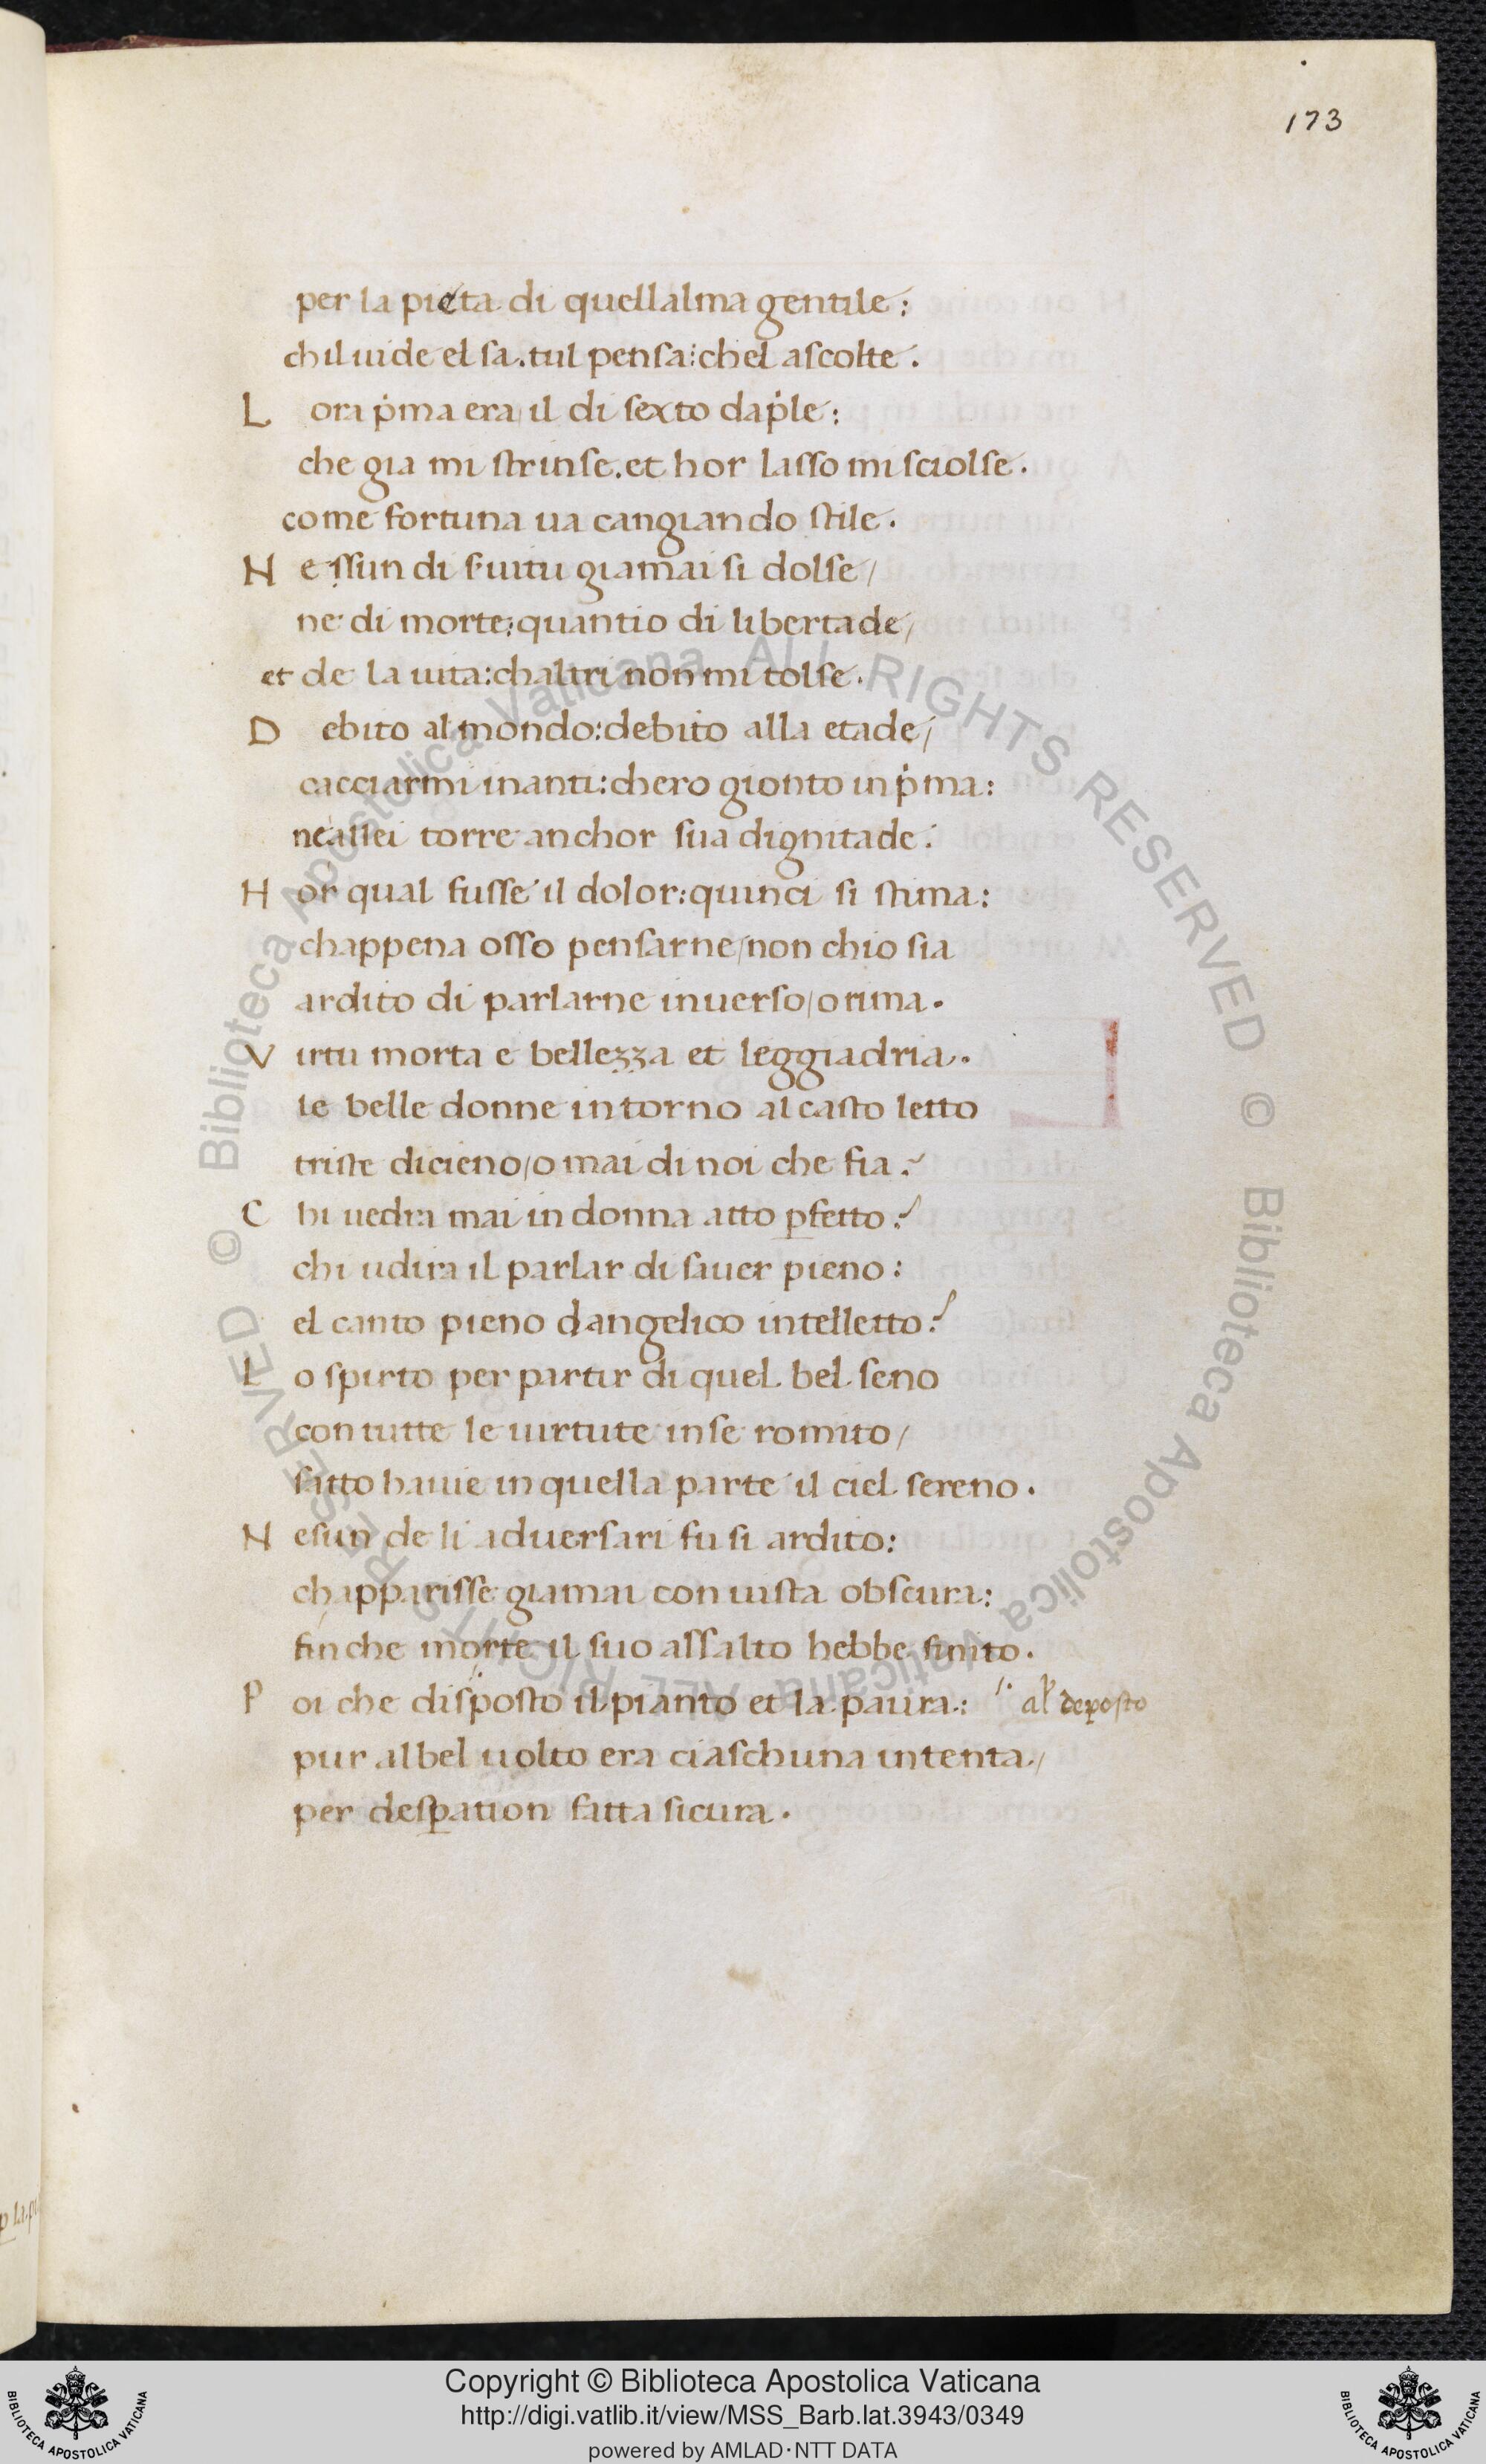 173
per la pieta di quellalma gentile:
chil uide el sa. tul pensa: chel ascolte.
L ora ṗma era il di sexto daṗle:
che gia mi strinse. et hor lasso mi sciolse.
come fortuna ua cangiando stile.
N essun di s̓uitu giamai si dolse/
ne di morte: quantio di libertade/
et de la uita: chaltri non mi tolse.
D ebito al mondo: debito alla etade/
cacciarmi inanti: chero gionto in ṗma:
ne allei torre anchor sua dignitade.
H or qual fusse il dolor: quinci si stima:
chappena osso pensarne/ non chio sia
ardito di parlarne inuerso/ o rima.
V irtu morta e bellezza et leggiadria.
le belle donne intorno al casto letto
triste dicieno/ o mai di noi che fia?
C hi uedra mai in donna atto ꝑfetto?
chi udira il parlar di sauer pieno:
el canto pieno dangelico intelletto?
L o spirto per partir di quel bel seno
con tutte le uirtute in se romito/
fatto hauie in quella parte il ciel sereno.
N esun de li aduersari fu si ardito:
chapparisse giamai con uista obscura:
fin che morte il suo assalto hebbe finito.
P oi che disposto il pianto et la paura: al̓ deposto
pur al bel uolto era ciaschuna intenta/
per desꝑation fatta sicura.
p̲ la pi
© Biblioteca Apostolica Vaticana ALL RIGHTS RESERVED © Biblioteca Apostolica Vaticana ALL RIGHTS RESERVED
Copyright © Biblioteca Apostolica Vaticana
http://digi.vatlib.it/view/MSS_Barb.lat.3943/0349
powered by AMLAD·NTT DATA
BIBLIOTECA APOSTOLICA VATICANA
BIBLIOTECA APOSTOLICA VATICANA